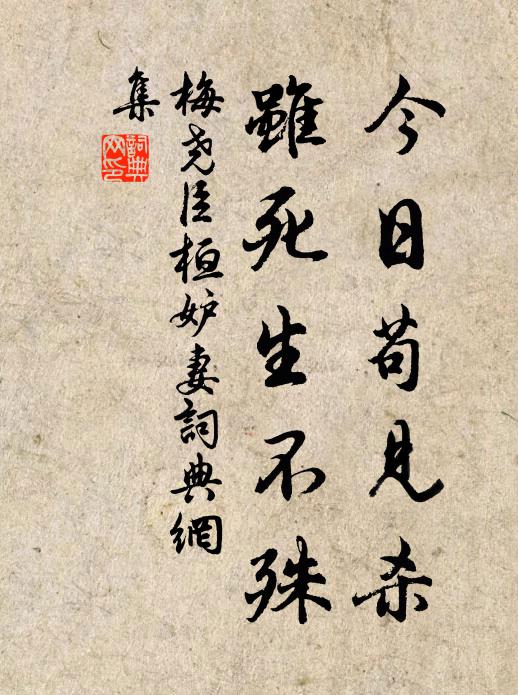 今日苟見杀
雖死生不殊
梅尧臣桓妒妻詞典網
集
詞典
网印